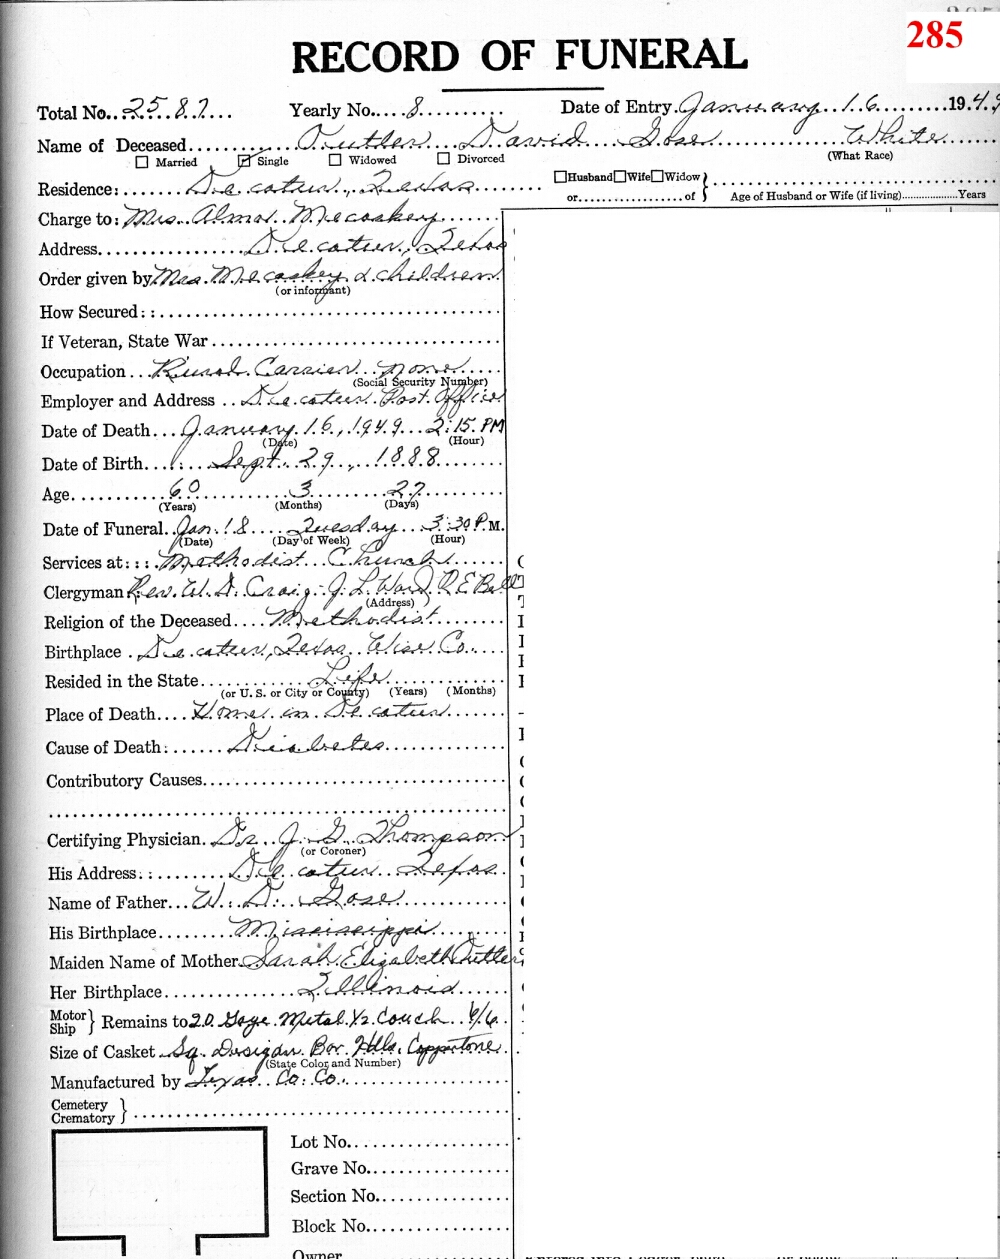 285
RECORD OF FUNERAL
Total No. 2587 Yearly No. 8 Date of Entry January 16 194
Name of Deceased David Gose White
☐ Married ☑ Single ☐ Widowed ☐ Divorced (What Race)
Residence: Decatur, Texas ☐Husband☐Wife☐Widow }
or of Age of Husband or Wife (if living) Years
Charge to: Mrs. Alma Mecaskey
Address Decatur, Texas
Order given by Mrs. Mecaskey & children
(or informant)
How Secured::
If Veteran, State War
Occupation Rural Carrier none
(Social Security Number)
Employer and Address Decatur Post Office
Date of Death January 16, 1949 2:15 PM
(Date) (Hour)
Date of Birth Sept. 29, 1888
Age 60 3 27
(Years) (Months) (Days)
Date of Funeral Jan. 18 Tuesday 3:30 P.M.
(Date) (Day of Week) (Hour)
Services at::: Methodist Church
Clergyman Rev. W. D. Craig - J L Ward R E Bell
(Address)
Religion of the Deceased Methodist
Birthplace Decatur, Texas Wise Co.
Resided in the State Life
(or U. S. or City or County) (Years) (Months)
Place of Death Home in Decatur
Cause of Death: Diabetes
Contributory Causes
Certifying Physician Dr. J. G. Thompson
(or Coroner)
His Address:: Decatur Texas
Name of Father W. D. Gose
His Birthplace Mississippi
Maiden Name of Mother Sarah Elizabeth
Her Birthplace Illinois
Motor
Ship } Remains to 20 Gage Metal ½ Couch 6/6
Size of Casket Sq. Design Bar Hdls. Coppertone
(State Color and Number)
Manufactured by Texas Co. Co.
Cemetery
Crematory }
Lot No.
Grave No.
Section No.
Block No.
Owner